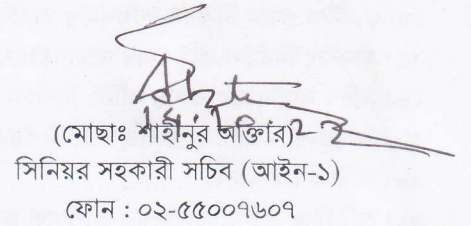 (মোছাঃ শাহীনুর আক্তার)
সিনিয়র সহকারী সচিব (আইন-১)
ফোন : ০২-৫৫০০৭৬০৭